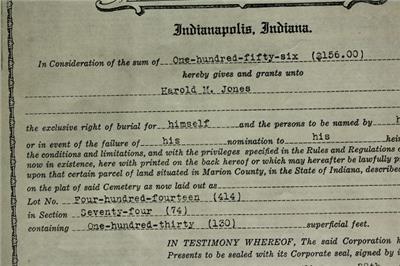 Indianapolis, Indiana.
In Consideration of the sum of One-hundred-fifty-six ($156.00)
hereby gives and grants unto
Harold M. Jones
the exclusive right of burial for himself and the persons to be named by h
or in event of the failure of his nomination to his hei
the conditions and limitations, and with the privileges specified in the Rules and Regulations o
now in existence, here with printed on the back hereof or which may hereafter be lawfully pr
upon that certain parcel of land situated in Marion County, in the State of Indiana, described
on the plat of said Cemetery as now laid out as
Lot No. Four-hundred-fourteen (414)
in Section Seventy-four (74)
containing One-hundred-thirty (130) superficial feet.
IN TESTIMONY WHEREOF, The said Corporation h
Presents to be sealed with its Corporate seal, signed by i